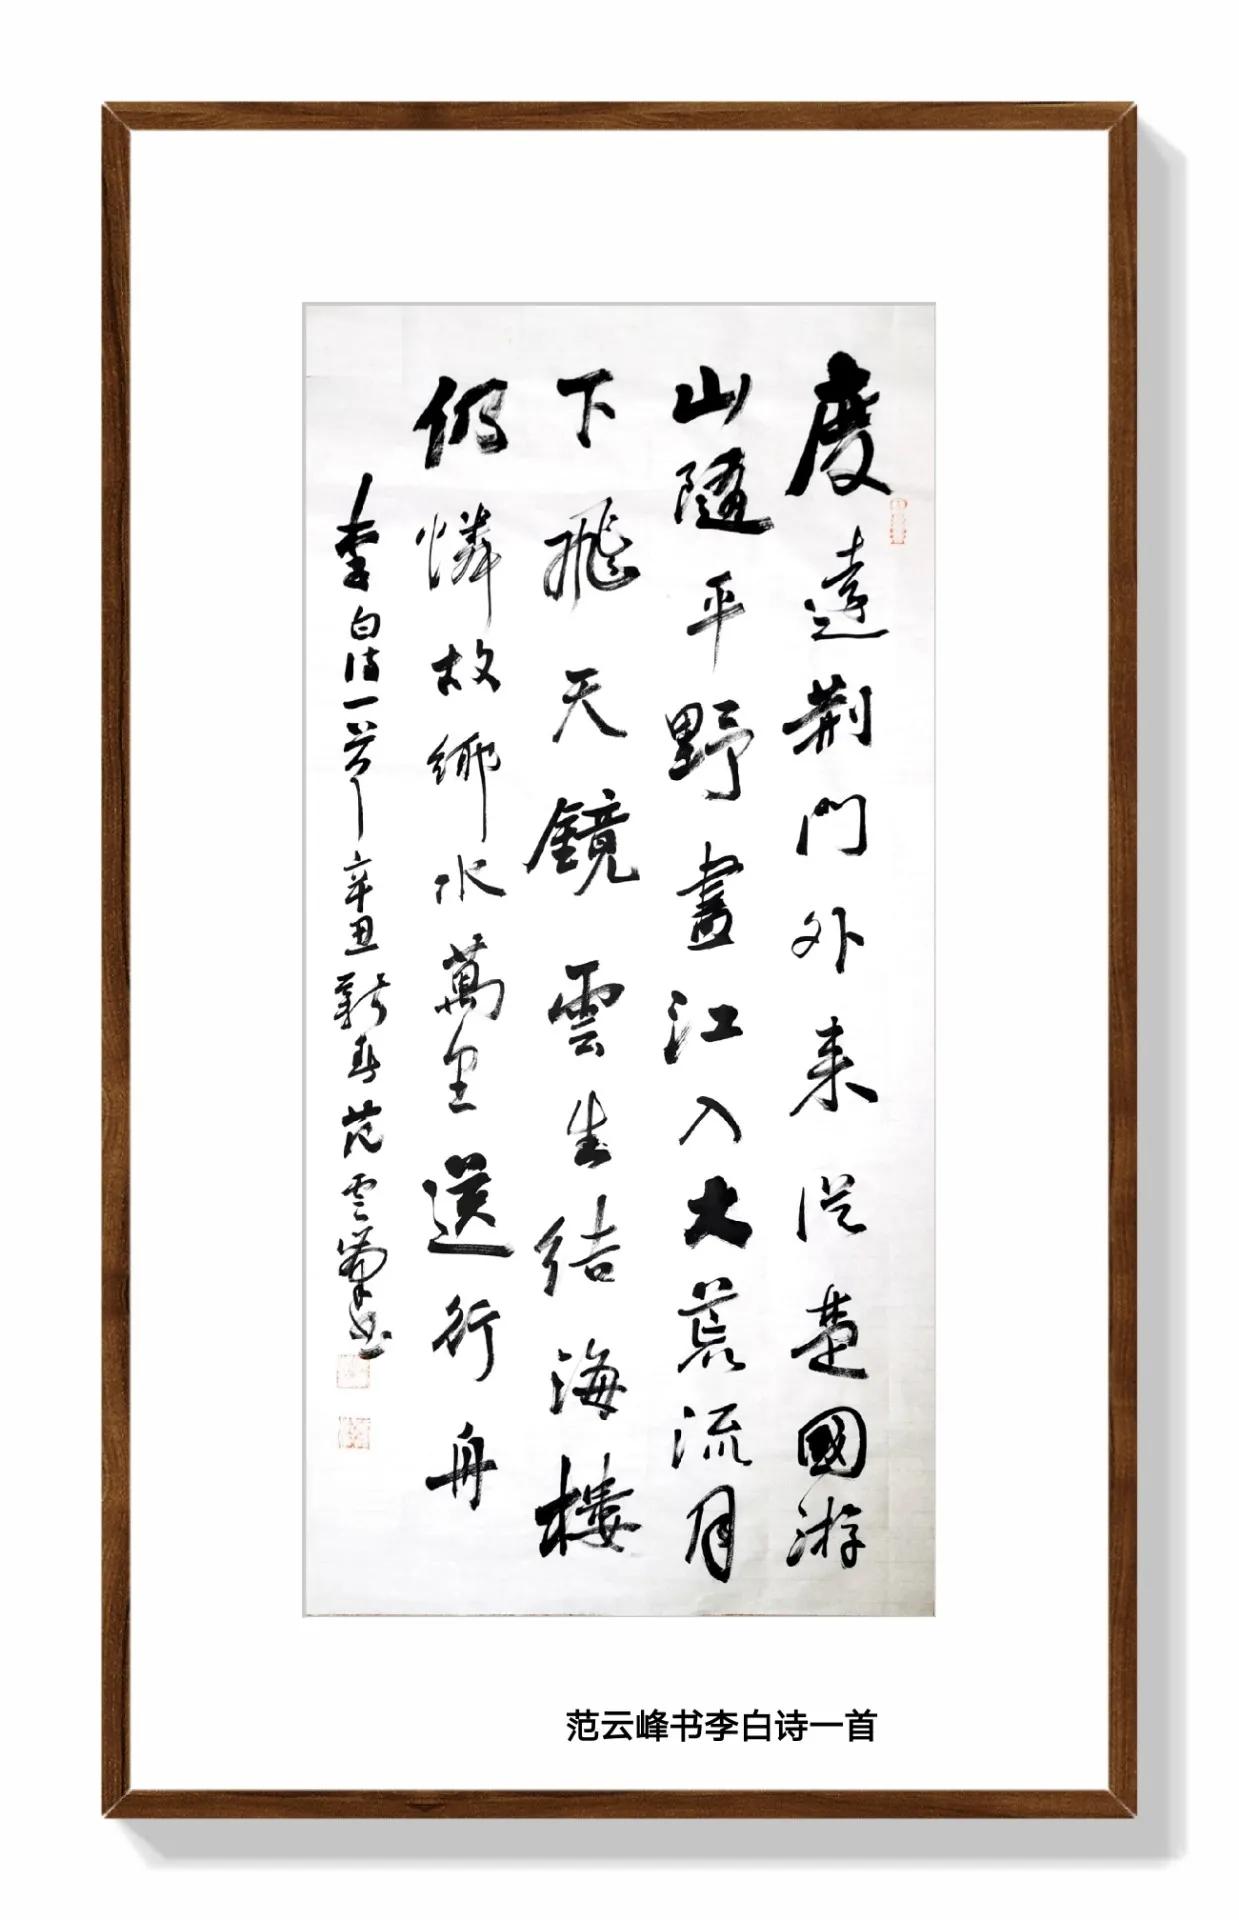 度遠荆門外来從楚國游
山隨平野盡江入大荒流月
下飛天鏡雲生结海樓
仍憐故鄉水萬里送行舟
李白诗一首辛丑新春范雲峰书
范云峰书李白诗一首